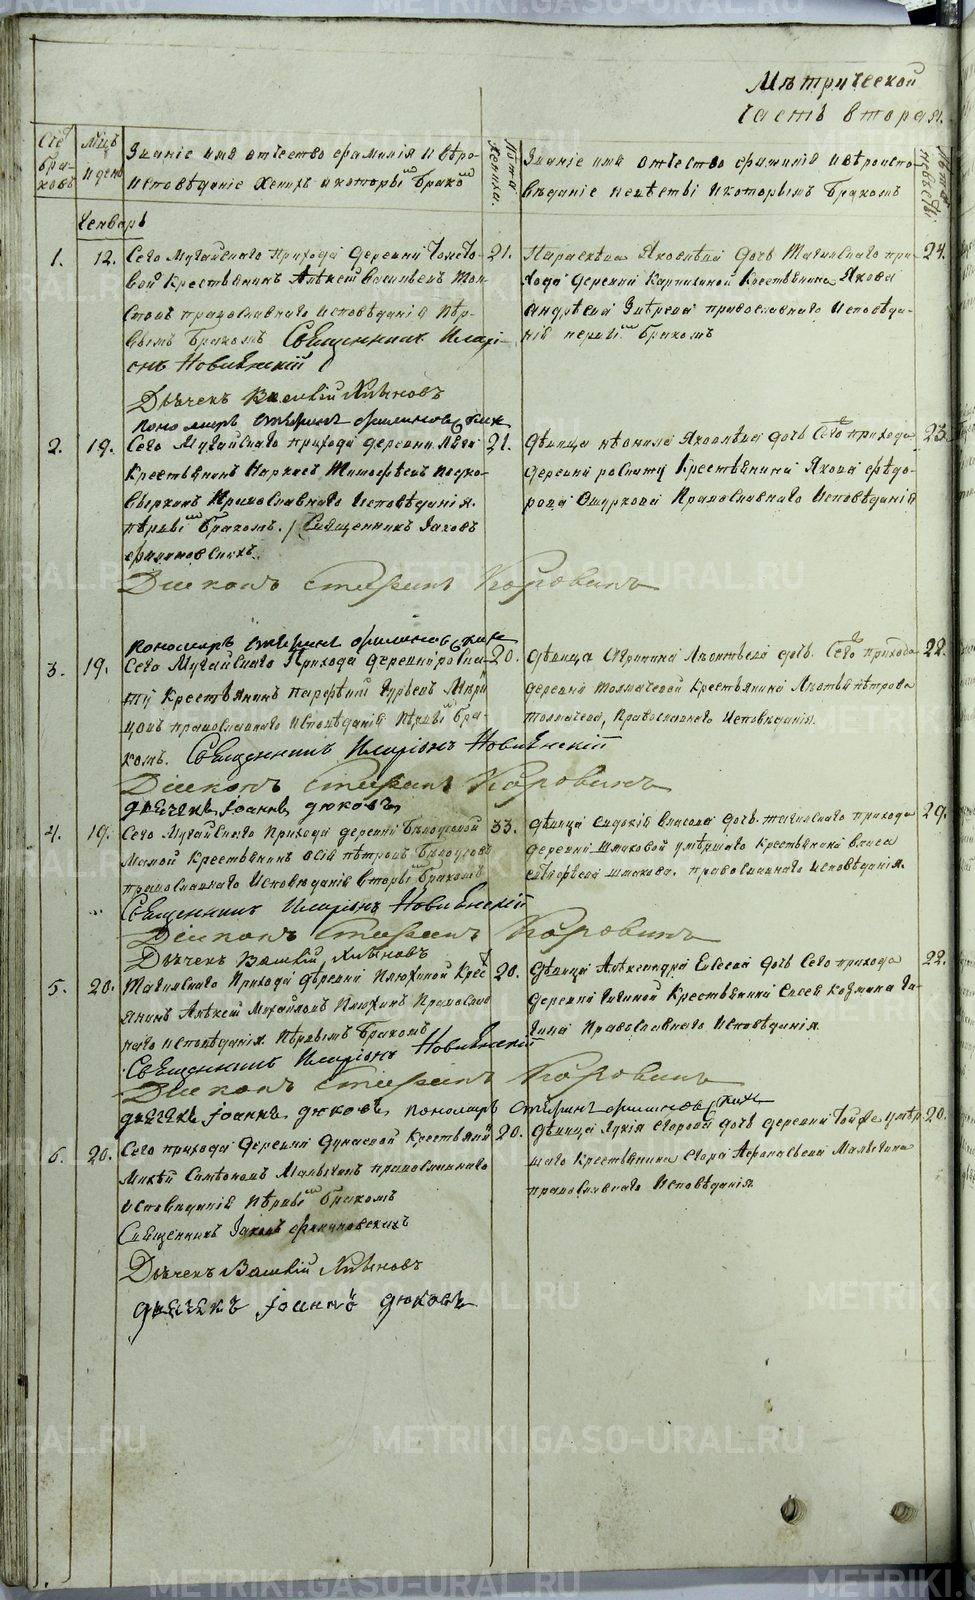 Мѣтрической
часть вторая.
Счетъ браковъ
Мцъ и день
Званіе имя отчество фамилія и вѣро-
исповѣданіе жениха и которымъ бракомъ
Лѣта жениха.
Званіе имя отчество фамилія и вѣроиспо-
вѣданіе невѣсты и которымъ бракомъ
Лѣта невѣсты
Генварь
1. 12. Сего Мугайскаго прихода деревни
вой крестьянинъ Алексей Васильевъ Тол-
стовъ православнаго исповѣданія пер-
вымъ бракомъ Священникъ Иларі-
онъ Новиѣнскій
Дьячекъ Василій Хлыновъ
пономарь Стефанъ Филиновскихъ
21.
Параскѣва Яковлева дочь Тагильскаго при-
хода деревни Карпихиной крестьянина Якова
Андрѣева Звѣрева православнаго исповѣда-
нія первымъ бракомъ
24.
2. 19. Сего Мугайскаго прихода деревни
крестьянинъ Тимофѣевъ
православнаго исповѣданія.
первымъ бракомъ. Священникъ Іаковъ
Филиновскихъ
Діаконъ Стефанъ Коровинъ
пономарь Стефанъ Филиновскихъ
21.
Дѣвица Неонила Яковлева дочь Сего прихода
деревни крестьянина Якова Федо-
рова Ошуркова православнаго исповѣданія
23.
3. 19. Сего Мугайскаго прихода деревни
крестьянинъ Парфеній Гурьевъ
православнаго исповѣданія первымъ бра-
комъ. Священникъ Иларіонъ Новиѣнскій
Діаконъ Стефанъ Коровинъ
дьячекъ Іоаннъ Дюковъ
20.
Дѣвица Агрипина Леонтьева дочь Сего прихода
деревни Толмачевой крестьянина Леонтья Петрова
Толмачева, православнаго исповѣданія.
22.
4. 19. Сего Мугайскаго прихода деревни Белоусовой
крестьянинъ Петровъ Белоусовъ
православнаго исповѣданія вторымъ бракомъ
Священникъ Иларіонъ Новиѣнскій
Діаконъ Стефанъ Коровинъ
Дьячекъ Василій Хлыновъ
33.
Дѣвица Власова дочь Тагильскаго прихода
деревни Шмаковой умершаго крестьянина Власа
Шмакова. православнаго исповѣданія.
29.
5. 20. Тагильскаго прихода деревни Плюхиной крест-
янинъ Алексей Михайловъ Плюхинъ православ-
наго исповѣданія первымъ бракомъ
Священникъ Иларіонъ Новиѣнскій
Діаконъ Стефанъ Коровинъ
дьячекъ Іоаннъ Дюковъ пономарь Стефанъ Филиновскихъ
20.
Дѣвица Александра Елисеева дочь Сего прихода
деревни крестьянина Козмина
православнаго исповѣданія.
22.
6. 20. Сего прихода деревни Дунаевой крестьянинъ
Симеоновъ Малыгинъ православнаго
исповѣданія первымъ бракомъ
Священникъ Іаковъ Филиновскихъ
Дьячекъ Василій Хлыновъ
дьячекъ Іоаннъ Дюковъ
20.
Дѣвица Егорова дочь деревни умер-
шаго крестьянина Егора Афонасьева Малыгина
православнаго исповѣданія
20.
METRIKI.GASO-URAL.RU